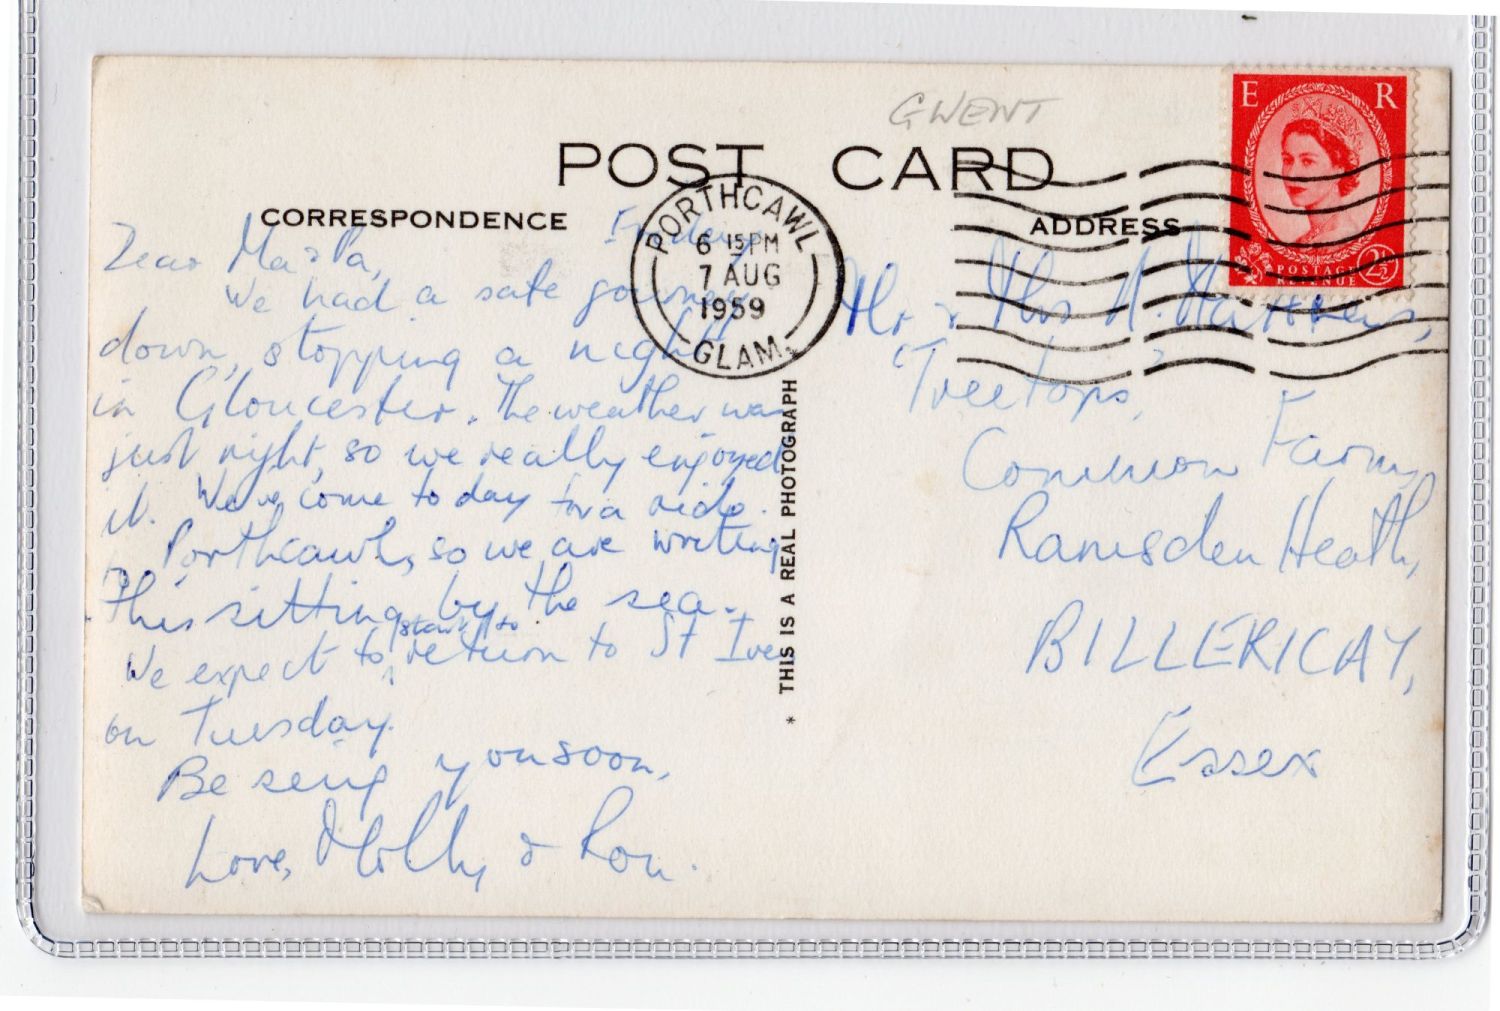 GWENT
POST CARD
CORRESPONDENCE
ADDRESS
E R
POSTAGE
REVENUE
2½
PORTHCAWL
6 15 PM
7 AUG
1959
GLAM.
Friday
Dear
We had a safe journey
down, stopping a night
in Gloucester. The weather was
just right, so we really enjoyed
it. We've come today for a ride
to Porthcawl, so we are writing
this sitting by the sea.
We expect to start to return to St Ives
on Tuesday.
Be seing you soon,
Love, Molly & Ron.
* THIS IS A REAL PHOTOGRAPH
Mr & Mrs
'Treetops,'
Common Farm,
Ramsden Heath,
BILLERICAY,
Essex